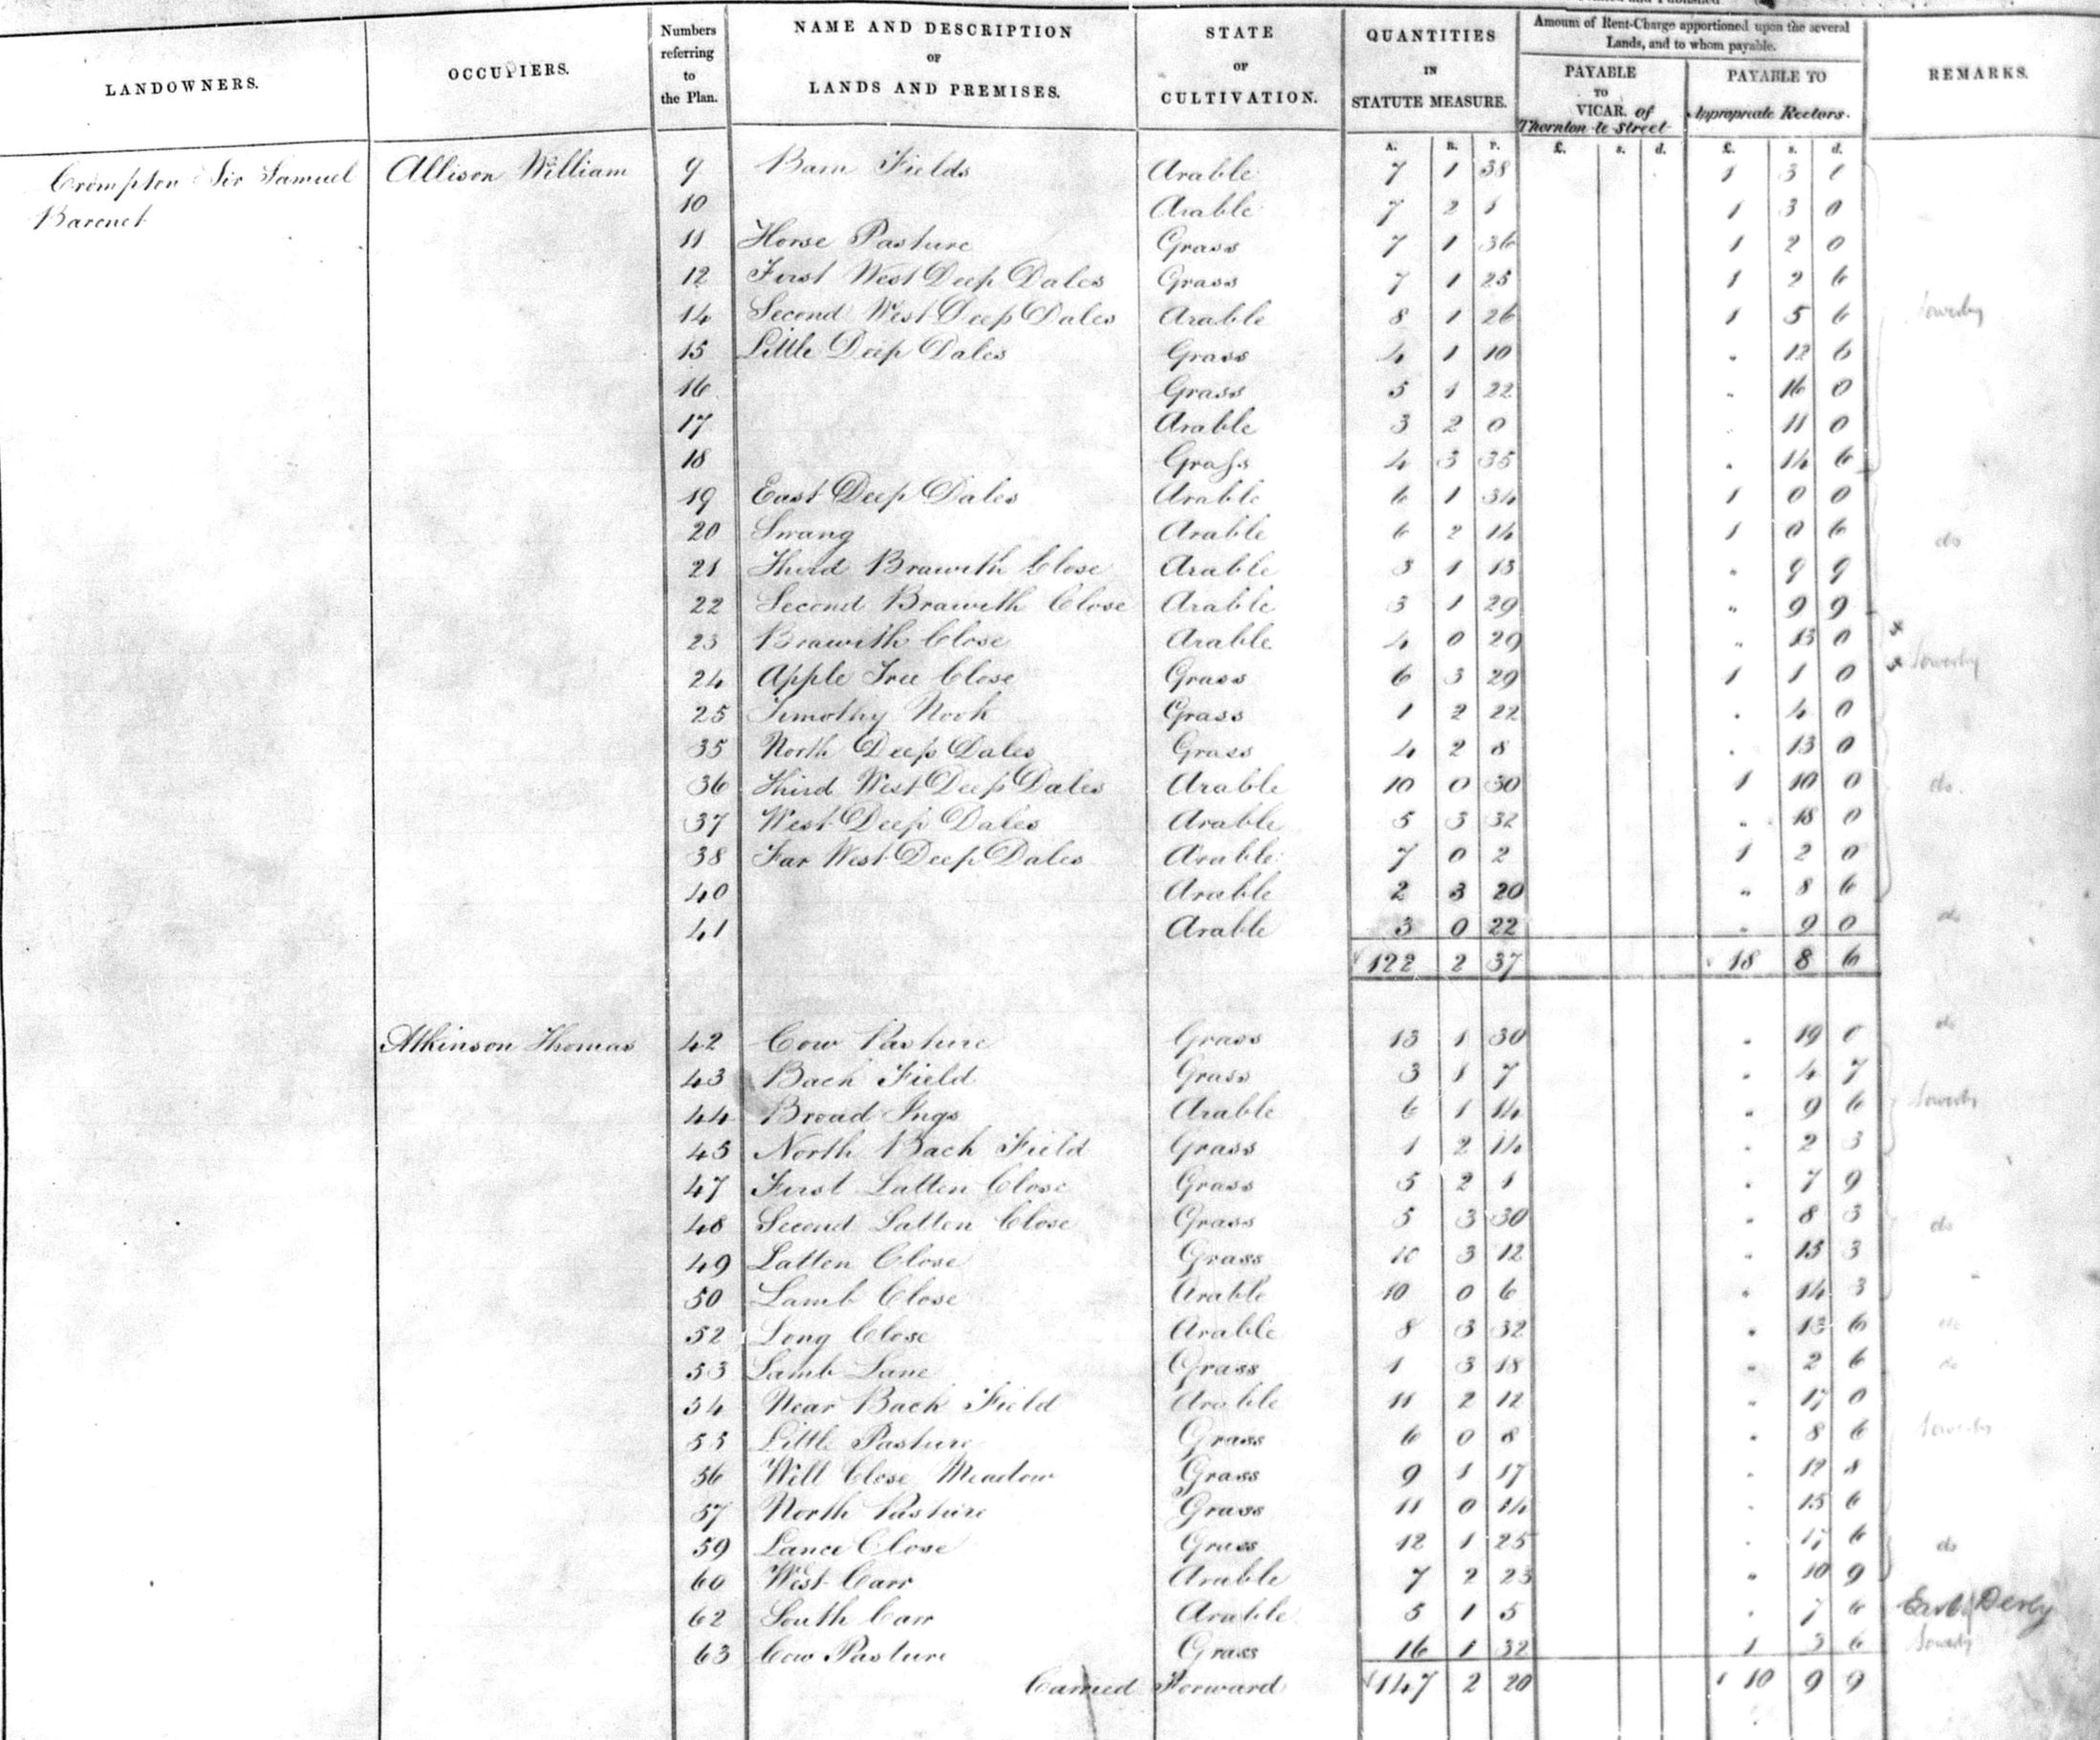 LANDOWNERS. OCCUPIERS. Numbers referring to the Plan. NAME AND DESCRIPTION OF LANDS AND PREMISES. STATE OF CULTIVATION. QUANTITIES IN STATUTE MEASURE. Amount of Rent-Charge apportioned upon the several Lands, and to whom payable. PAYABLE TO VICAR. of Thornton le Street PAYABLE TO Appropreate Rectors. REMARKS.
A. R. P. £. s. d. £. s. d.
Crompton Sir Samuel Allison William 9 Barn Fields Arable 7 1 38 1 3
Baronet 10 Arable 7 2 1 1 3 0
11 Horse Pasture Grass 7 1 36 1 2 0
12 First West Deep Dales Grass 7 1 25 1 2 6
14 Second West Deep Dales Arable 8 1 26 1 5 6 Sowerby
15 Little Deep Dales Grass 4 1 10 " 12 6
16 Grass 5 1 22 " 16 0
17 Arable 3 2 0 " 11 0
18 Grass 4 3 35 " 14 6
19 East Deep Dales Arable 6 1 34 1 0 0
20 Swang Arable 6 2 14 1 0 6 do
21 Third Brawith Close Arable 3 1 13 " 9 9
22 Second Brawith Close Arable 3 1 29 " 9 9
23 Brawith Close Arable 4 0 29 " 13 0
24 Apple Tree Close Grass 6 3 29 1 1 0 Sowerby
25 Timothy Nook Grass 1 2 22 " 4 0
35 North Deep Dales Grass 4 2 8 " 13 0
36 Third West Deep Dales Arable 10 0 30 1 10 0 do.
37 West Deep Dales Arable 5 3 32 " 18 0
38 Far West Deep Dales Arable 7 0 2 1 2 0
40 Arable 2 3 20 " 8 6
41 Arable 3 0 22 " 9 0 do
122 2 37 18 8 6
Atkinson Thomas 42 Cow Pasture Grass 13 1 30 " 19 0 do
43 Back Field Grass 3 1 7 " 4 7
44 Broad Ings Arable 6 1 14 " 9 6 Sowerby
45 North Back Field Grass 1 2 14 " 2 3
47 First Latten Close Grass 5 2 1 " 7 9
48 Second Latten Close Grass 5 3 30 " 8 3 do
49 Latten Close Grass 10 3 12 " 15 3
50 Lamb Close Arable 10 0 6 " 14 3
52 Long Close Arable 8 3 32 " 13 6 do
53 Lamb Lane Grass 1 3 18 " 2 6 do
54 Near Back Field Arable 11 2 12 " 17 0
55 Little Pasture Grass 6 0 8 " 8 6 Sowerby
56 Well Close Meadow Grass 9 1 17 " 12
57 North Pasture Grass 11 0 14 " 15 6
59 Lance Close Grass 12 1 25 " 17 6 do
60 West Carr Arable 7 2 23 " 10 9
62 South Carr Arable 5 1 5 " 7 6
63 Cow Pasture Grass 16 1 32 1 3 6 Sowerby
Carried Forward 147 2 20 10 9 9